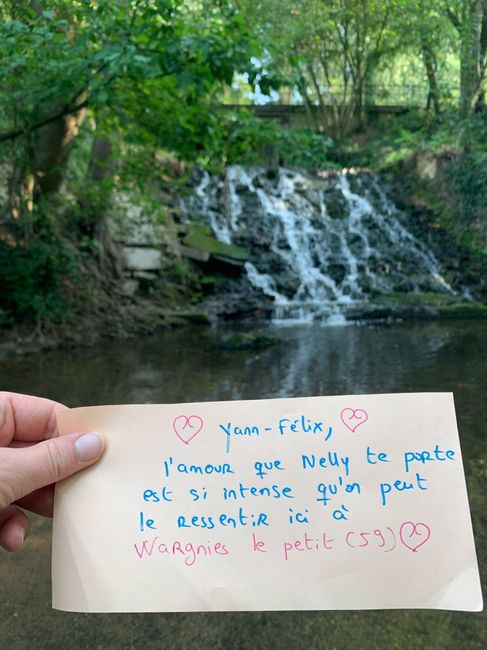 Yann-Félix,
l'amour que Nelly te porte
est si intense qu'on peut
le ressentir ici à
Wargnies le petit (59)